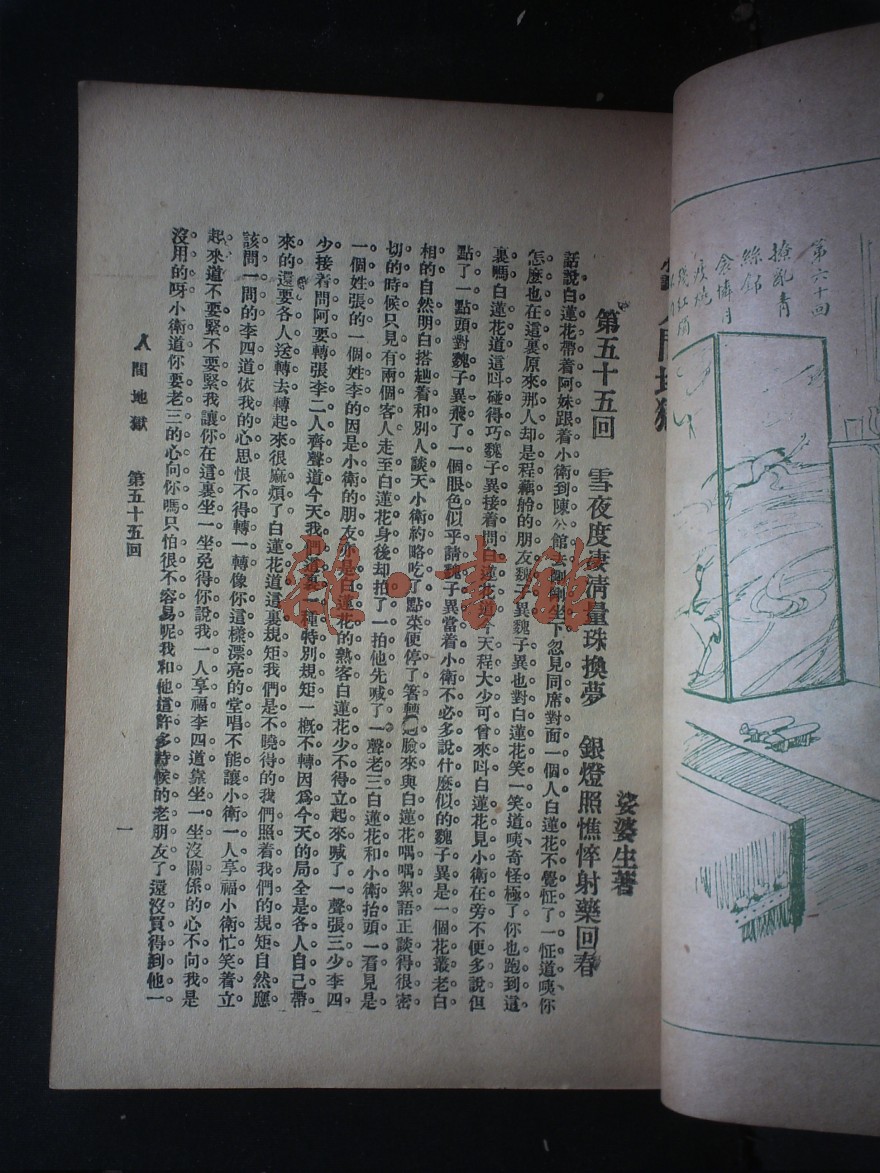 第六十回
撩亂青
絲錦
人間地獄
娑婆生著
第五十五回　雪夜度凄清量珠換夢　銀燈照憔悴射藥回春
話說白蓮花帶着阿妹跟着小衛到陳公館去剛剛坐下忽見同席對面一個人白蓮花不覺怔了一怔道咦你
怎麼也在這裏原來那人却是程藕舲的朋友魏子異魏子異也對白蓮花笑一笑道咦奇怪極了你也跑到這
裏嗎白蓮花道這呌碰得巧魏子異接着問白蓮花道今天程大少可曾來呌白蓮花見小衛在旁不便多說但
點了一點頭對魏子異飛了一個眼色似乎請魏子異當着小衛不必多說什麼似的魏子異是一個花叢老白
相的自然明白搭趟着和別人談天小衛約略吃了點菜便停了箸轉過臉來與白蓮花喁喁絮語正談得很密
切的時候只見有兩個客人走至白蓮花身後却拍了一拍他先喊了一聲老三白蓮花和小衛抬頭一看見是
一個姓張的一個姓李的因是小衛的朋友亦是白蓮花的熟客白蓮花少不得立起來喊了一聲張三少李四
少接着問阿要轉張李二人齊聲道今天我們這裏一種特別規矩一槪不轉因爲今天的局全是各人自己帶
來的還要各人送轉去轉起來很麻煩了白蓮花道這裏規矩我們是不曉得的我們照着我們的規矩自然應
該問一問的李四道依我的心思恨不得轉一轉像你這樣漂亮的堂唱不能讓小衛一人享福小衛忙笑着立
起來道不要緊不要緊我讓你在這裏坐一坐免得你說我一人享福李四道靠坐一坐沒關係的心不向我是
沒用的呀小衛道你要老三的心向你嗎只怕很不容易呢我和他這許多時候的老朋友了還沒買得到他一
人間地獄　第五十五回
一
雜·書館